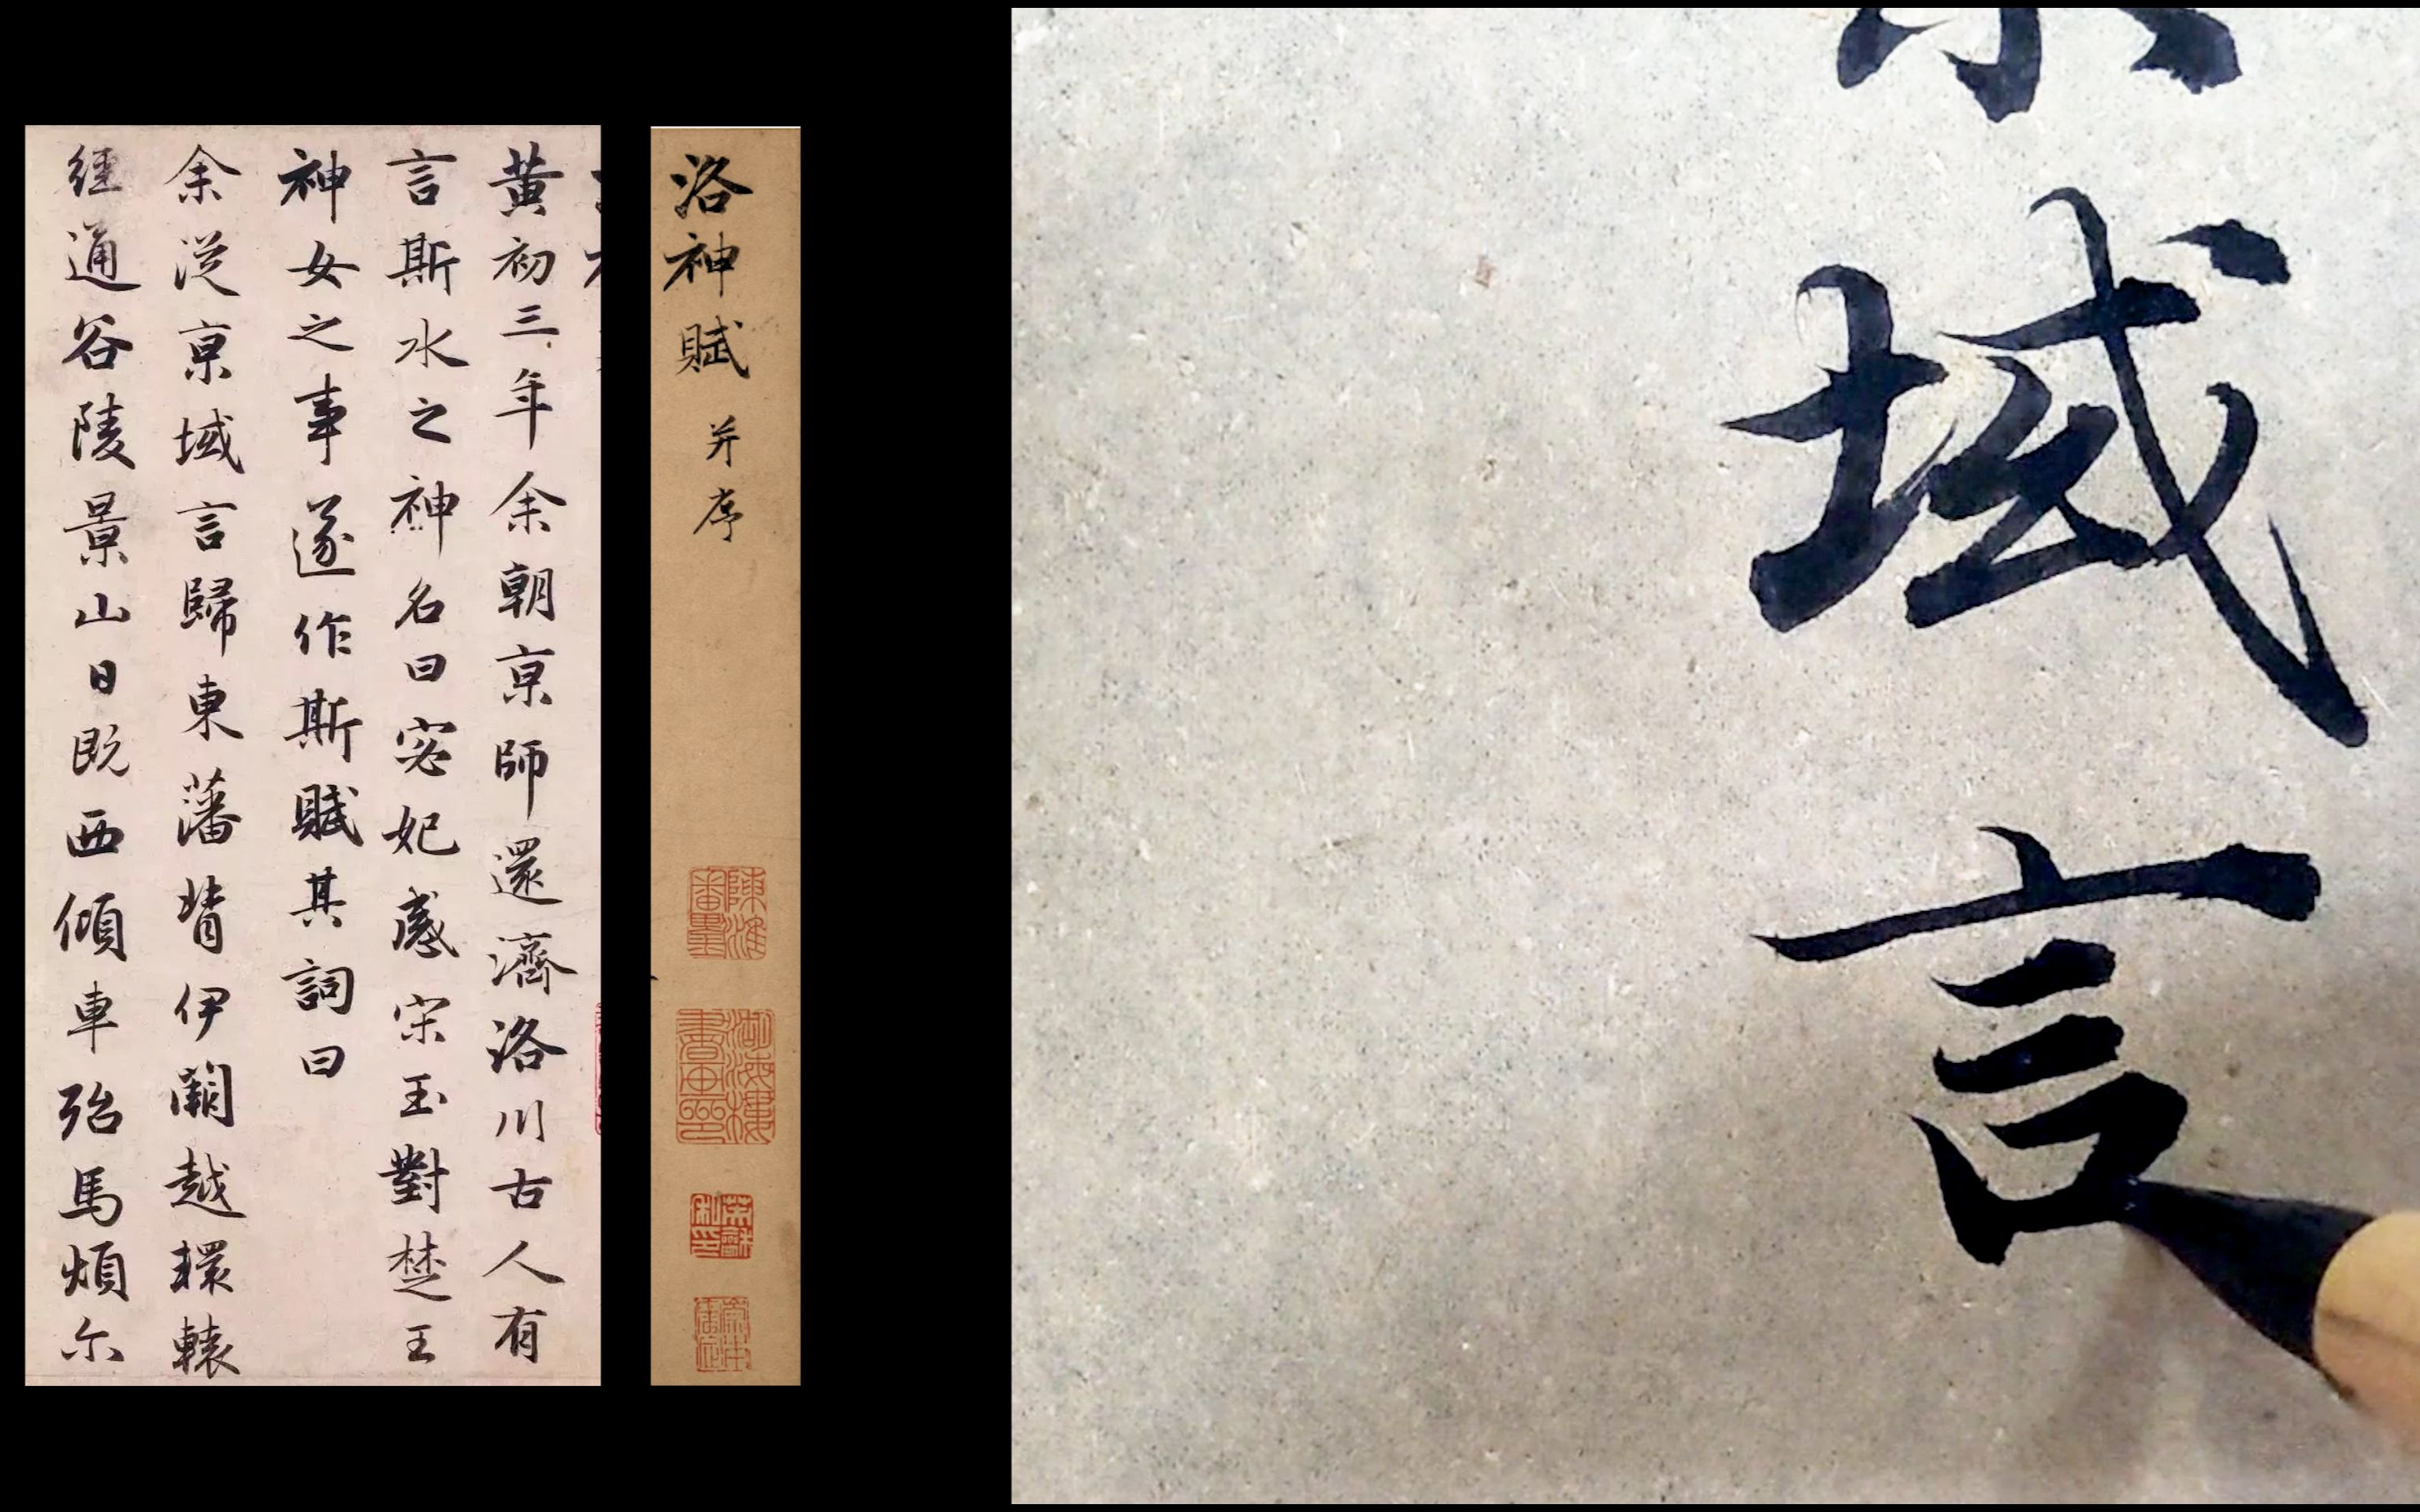 洛神賦 并序
黄初三年余朝亰師還濟洛川古人有
言斯水之神名曰宓妃感宋玉對楚王
神女之事遂作斯賦其詞曰
余從亰域言歸東藩背伊闕越轘轅
經通谷陵景山日既西傾車殆馬煩尓
域言